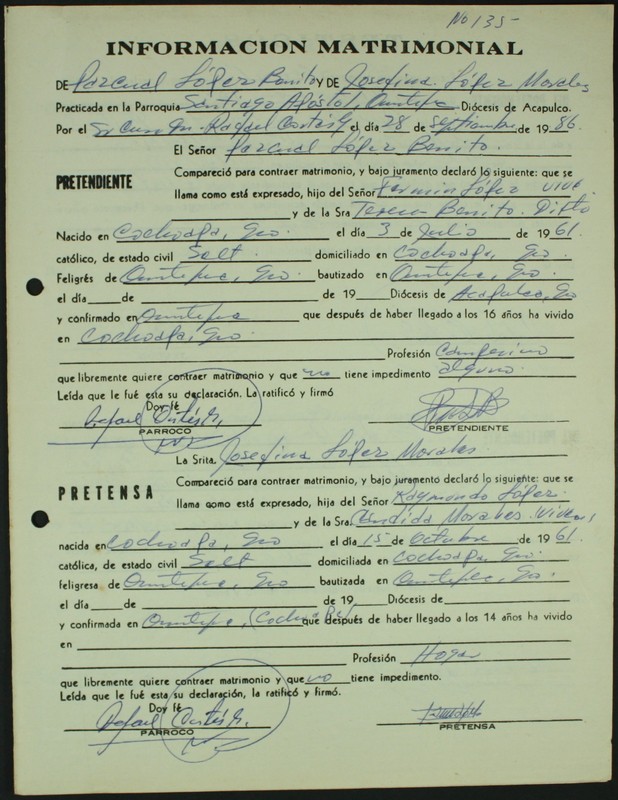 No 135-
INFORMACION MATRIMONIAL
DE Pascual López Benito y DE Josefina López Morales
Practicada en la Parroquia Santiago Apóstol, Ometepec Diócesis de Acapulco.
Por el Sr Cura Dn. Rafael Cortés G. el día 28 de septiembre de 1986.
El Señor Pascual López Benito.
PRETENDIENTE
Compareció para contraer matrimonio, y bajo juramento declaró lo siguiente: que se
llama como está expresado, hijo del Señor Fermin López vive.
y de la Sra Teresa Benito. Difto
Nacido en Cochoapa, Gro. el día 3 de Julio de 1961.
católico, de estado civil Solt. domiciliado en Cochoapa, Gro.
Feligrés de Ometepec, Gro. bautizado en Ometepec, Gro.
el día de de 19 Diócesis de Acapulco, Gro
y confirmado en Ometepec que después de haber llegado a los 16 años ha vivido
en Cochoapa, Gro.
Profesión Campesino
que libremente quiere contraer matrimonio y que no tiene impedimento alguno.
Leída que le fué esta su declaración, La ratificó y firmó
Doy fé
Rafael Cortés G.
PARROCO
PRETENDIENTE
La Srita. Josefina López Morales.
PRETENSA
Compareció para contraer matrimonio, y bajo juramento declaró lo siguiente: que se
llama como está expresado, hija del Señor Raymundo López.
y de la Sra. Candida Morales. Viven
nacida en Cochoapa, Gro el día 15 de Octubre de 1961.
católica, de estado civil Solt domiciliada en Cochoapa, Gro.
feligresa de Ometepec, Gro bautizada en Ometepec, Gro.
el día de de 19 Diócesis de
y confirmada en Ometepec, (Cochoapa) que después de haber llegado a los 14 años ha vivido
en
Profesión Hogar
que libremente quiere contraer matrimonio y que no tiene impedimento.
Leída que le fué esta su declaración, la ratificó y firmó.
Doy fé
Rafael Cortés G.
PARROCO
PRETENSA